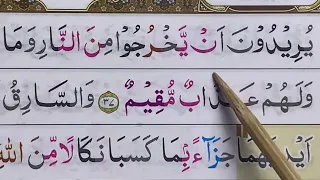 يُرِيدُونَ اَنْ يَّخْرُجُوا مِنَ النَّارِ وَمَا
وَلَهُمْ عَذَابٌ مُّقِيمٌ ﴿٣٧﴾ وَالسَّارِقُ
اَيْدِيَهُمَا جَزَآءًۢ بِمَا كَسَبَا نَكَالًا مِّنَ اللّٰهِ